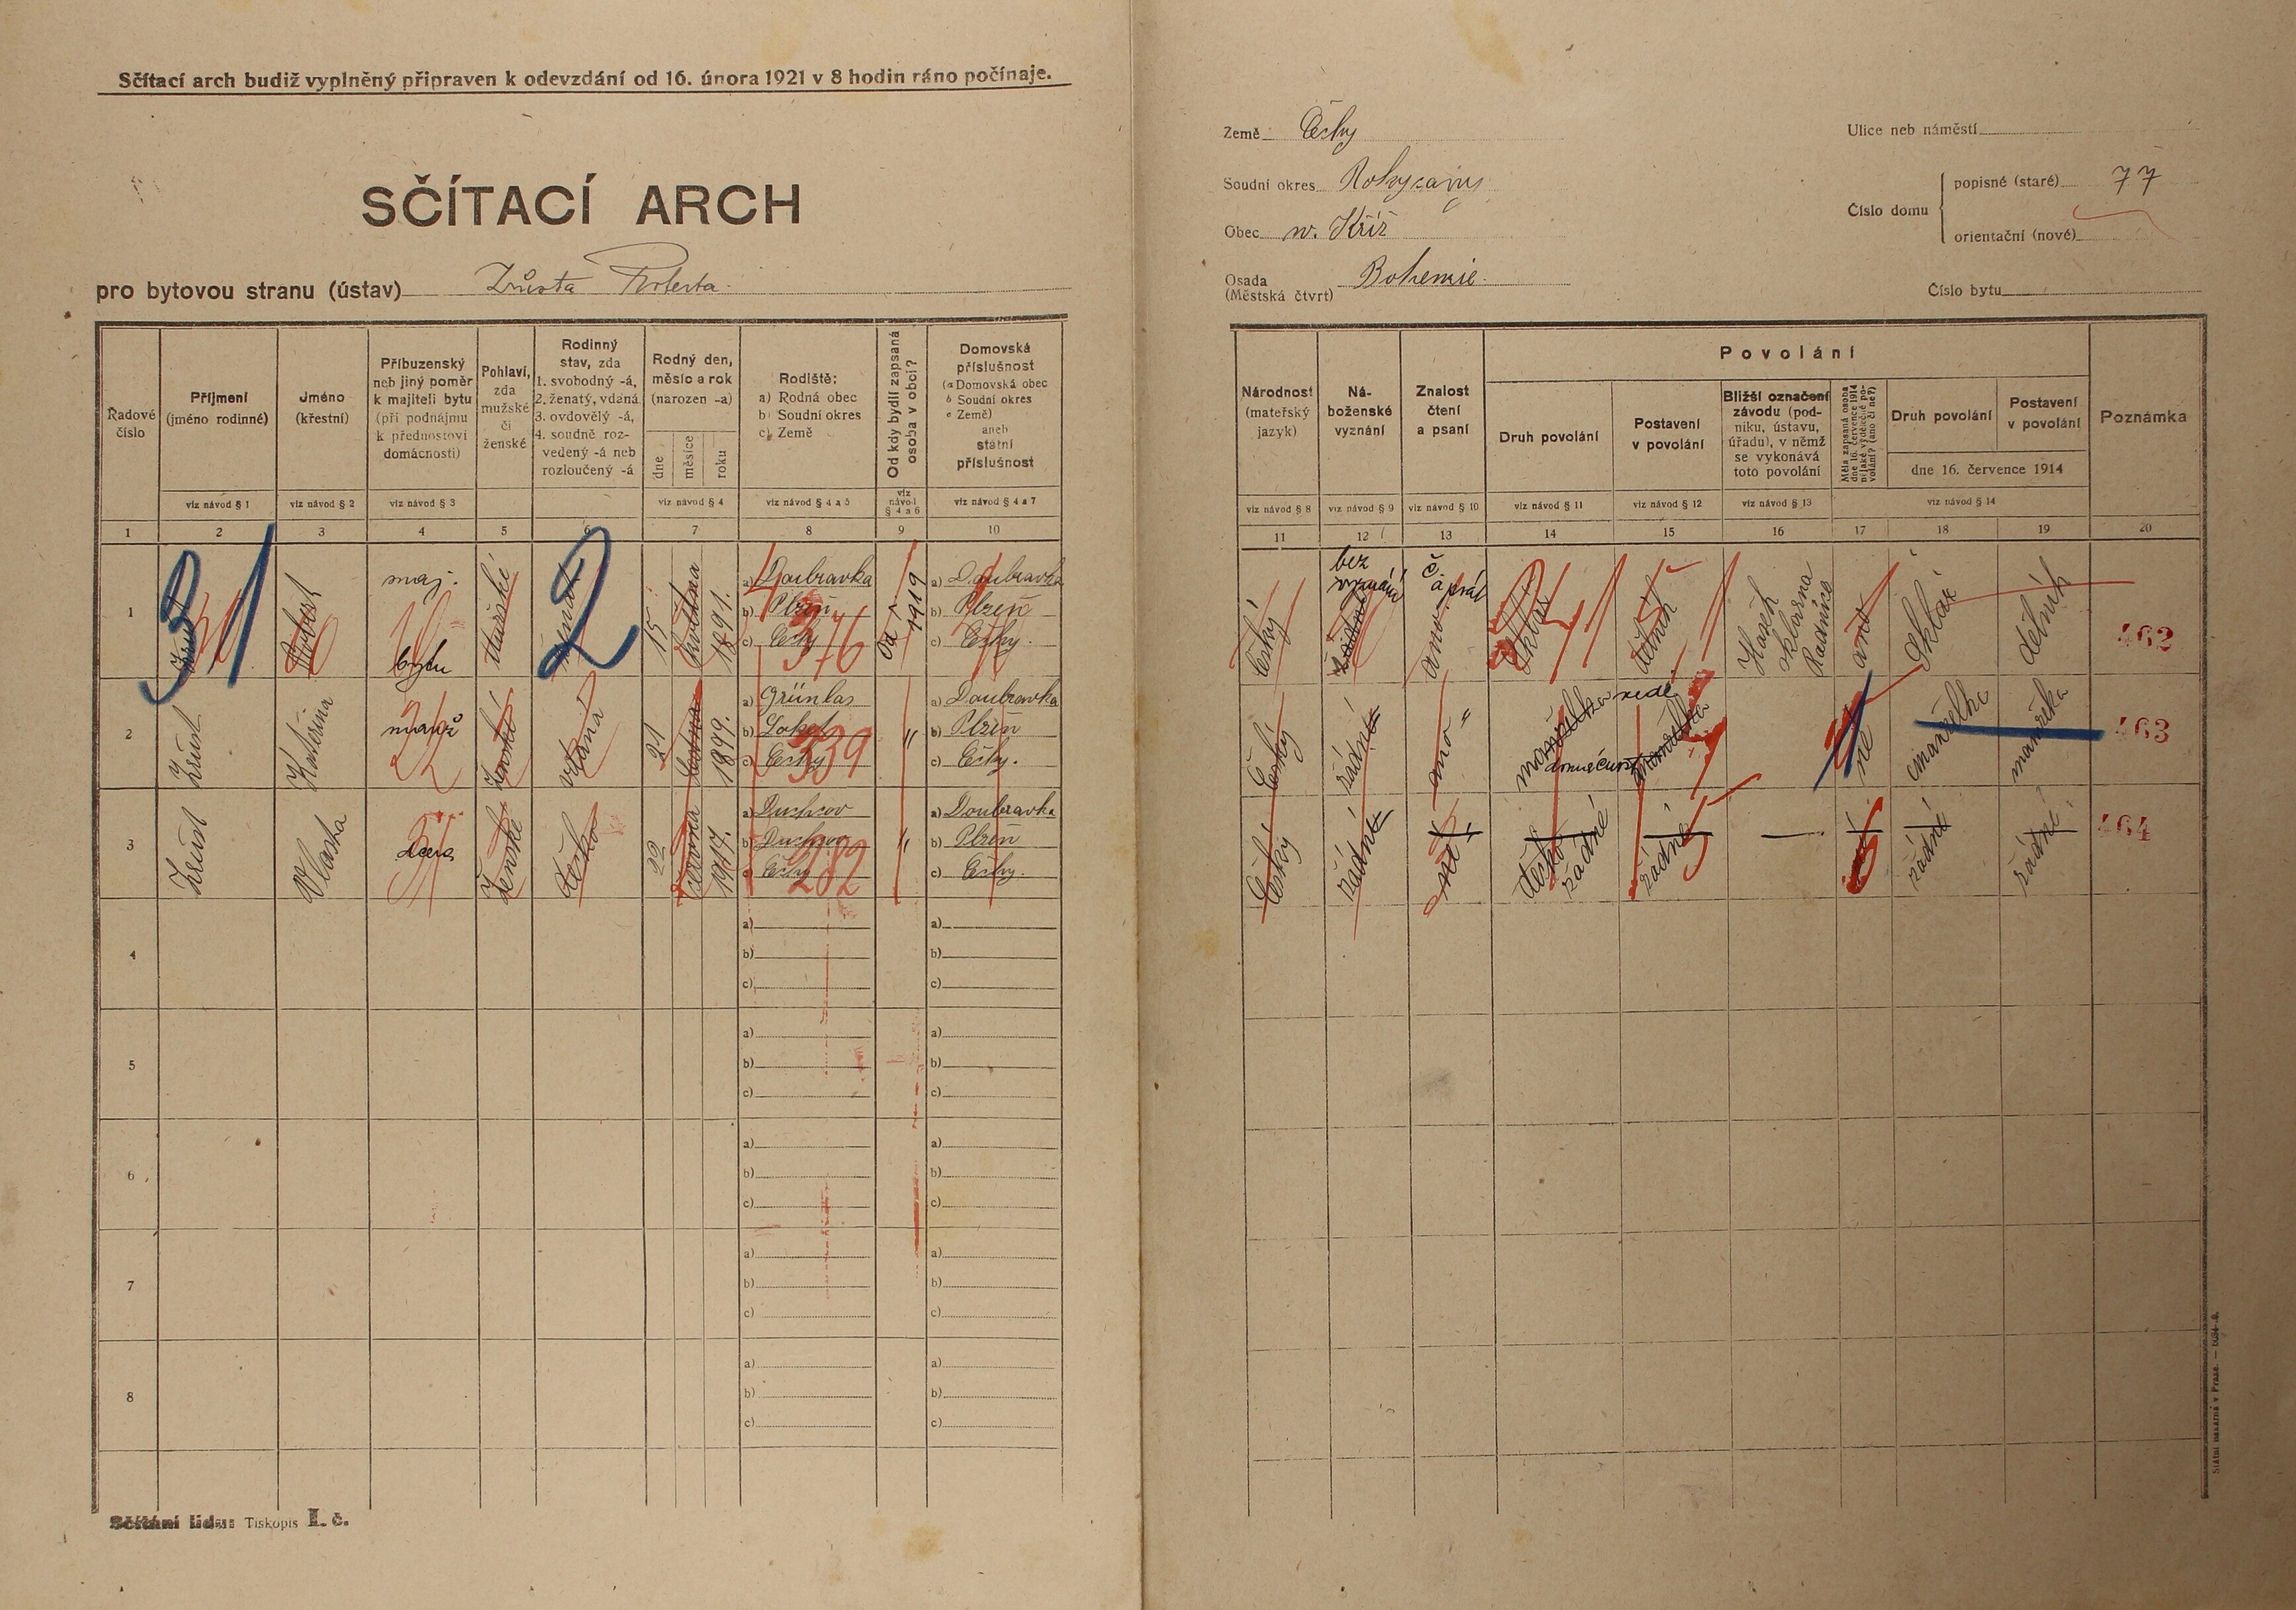 Sčítací arch budiž vyplněný připraven k odevzdání od 16. února 1921 v 8 hodin ráno počínaje.
SČÍTACÍ ARCH
pro bytovou stranu (ústav) Zrůsta Roberta.
Řadové číslo
Příjmení
(jméno rodinné)
viz návod § 1
Jméno
(křestní)
viz návod § 2
Příbuzenský
neb jiný poměr
k majiteli bytu
(při podnájmu
k přednostovi
domácnosti)
viz návod § 3
Pohlaví,
zda
mužské
či
ženské
Rodinný
stav, zda
1. svobodný -á,
2. ženatý, vdaná
3. ovdovělý -á,
4. soudně roz-
vedený -á neb
rozloučený -á
Rodný den,
měsíc a rok
(narozen -a)
dne
měsíce
roku
viz návod § 4
Rodiště:
a) Rodná obec
b) Soudní okres
c) Země
viz návod § 4 a 5
Od kdy bydlí zapsaná
osoba v obci?
viz
návod
§ 4 a 6
Domovská
příslušnost
(a Domovská obec
b Soudní okres
c Země)
aneb
státní
příslušnost
viz návod § 4 a 7
1 2 3 4 5 6 7 8 9 10
1
Zrůst
Robert
maj.
bytu
mužské
15
května
1891.
a) Doubravka
b) Plzeň
c) Čechy
376
Od r. 1919
a) Doubravka
b) Plzeň
c) Čechy.
2
2
Zrůst
Kateřina
manž
ženské
vdaná
21
1899.
a) Grünlas
b) Loket
c) Čechy
339
"
a) Doubravka
b) Plzeň
c) Čechy.
3
Zrůst
Vlasta
dcera
ženské
děcko
22
června
1917.
a) Duchcov
b) Duchcov
c) Čechy
282
"
a) Doubravka
b) Plzeň
c) Čechy.
4
a)
b)
c)
a)
b)
c)
5
a)
b)
c)
a)
b)
c)
6
a)
b)
c)
a)
b)
c)
7
a)
b)
c)
a)
b)
c)
8
a)
b)
c)
a)
b)
c)
Sčítání lidu: Tiskopis I. č.
Země Čechy
Soudní okres Rokycany
Obec w. Kříž
Osada
(Městská čtvrť) Bohemie.
Ulice neb náměstí
Číslo domu
popisné (staré) 77
orientační (nové)
Číslo bytu
Národnost
(mateřský
jazyk)
viz návod § 8
Ná-
boženské
vyznání
viz návod § 9
Znalost
čtení
a psaní
viz návod § 10
Povolání
Druh povolání
viz návod § 11
Postavení
v povolání
viz návod § 12
Bližší označení
závodu (pod-
niku, ústavu,
úřadu), v němž
se vykonává
toto povolání
viz návod § 13
Měla zapsaná osoba
dne 16. července 1914
nějaké výdělečné po-
volání? (ano či ne?)
Druh povolání
Postavení
v povolání
dne 16. července 1914
viz návod § 14
Poznámka
11 12 13 14 15 16 17 18 19 20
český
bez
vyznání
ano
Sklář
dělník
Hašek
sklárna
Radnice
ano
Sklář
dělník
462
český
žádné
ano "
manželka
vede
domácnost
manželka
ne
manželka
463
český
žádné
ne
děcko
žádné
žádné
—
žádné
žádné
464
Státní tiskárna v Praze.